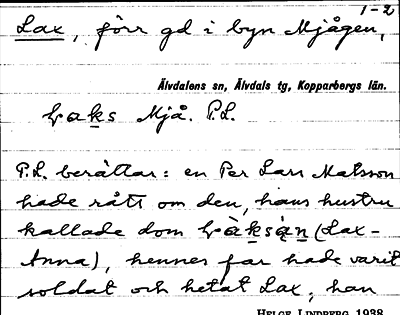 1-2
Lax, förr gd i byn Mjågen,
Älvdalens sn, Älvdals tg, Kopparbergs län.
Mjå. P.L.
P.L. berättar: en Per Lars Matsson
hade rått om den, hans hustru
kallade dom (Lax-
Anna), hennes far hade varit
soldat och hetat Lax, han
HELGE LINDBERG 1938